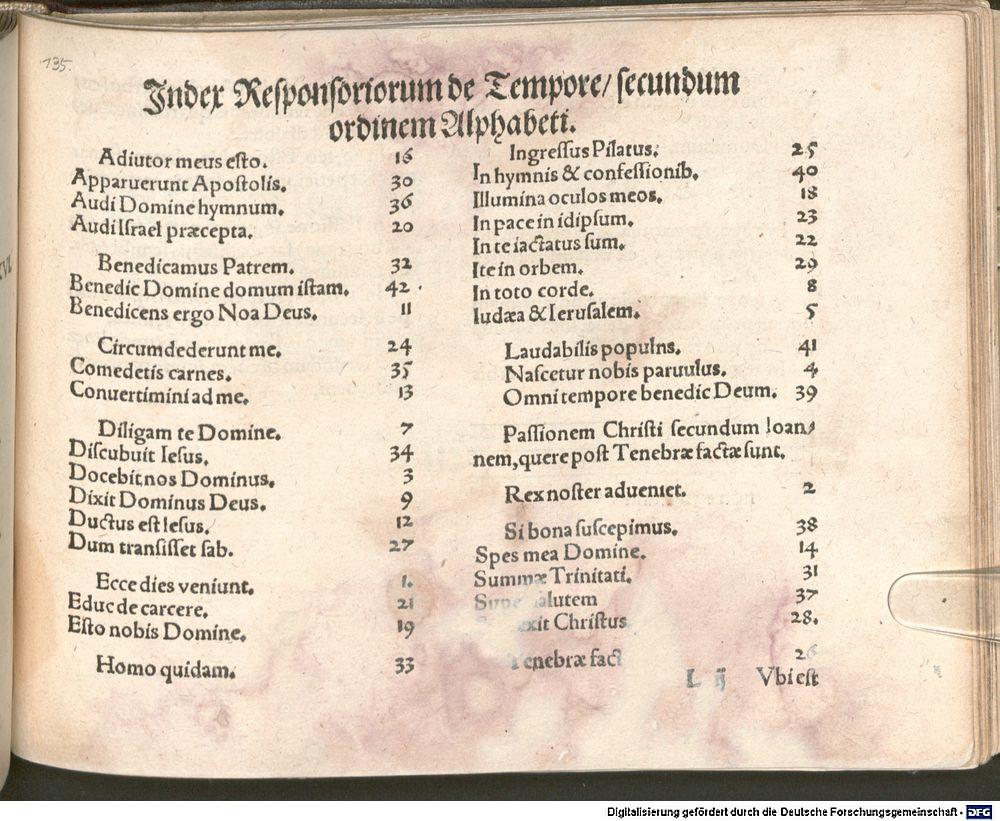 135.
Index Responsoriorum de Tempore/ secundum
ordinem Alphabeti.
Adiutor meus esto. 16
Apparuerunt Apostolis. 30
Audi Domine hymnum. 36
Audi Israel præcepta. 20
Benedicamus Patrem. 32
Benedic Domine domum istam. 42
Benedicens ergo Noa Deus. 11
Circumdederunt me. 24
Comedetis carnes. 35
Conuertimini ad me. 13
Diligam te Domine. 7
Discubuit Iesus. 34
Docebit nos Dominus. 3
Dixit Dominus Deus. 9
Ductus est Iesus. 12
Dum transisset sab. 27
Ecce dies veniunt. 1.
Educ de carcere. 21
Esto nobis Domine. 19
Homo quidam. 33
Ingressus Pilatus. 25
In hymnis & confessionib. 40
Illumina oculos meos. 18
In pace in idipsum. 23
In te iactatus sum. 22
Ite in orbem. 29
In toto corde. 8
Iudæa & Ierusalem. 5
Laudabilis populns. 41
Nascetur nobis paruulus. 4
Omni tempore benedic Deum. 39
Passionem Christi secundum Ioan/
nem, quere post Tenebræ factæ sunt.
Rex noster adueniet. 2
Si bona suscepimus. 38
Spes mea Domine. 14
Summæ Trinitati. 31
Supe alutem 37
exit Christus 28.
Tenebræ fact 26
L ij Vbi est
Digitalisierung gefördert durch die Deutsche Forschungsgemeinschaft - DFG